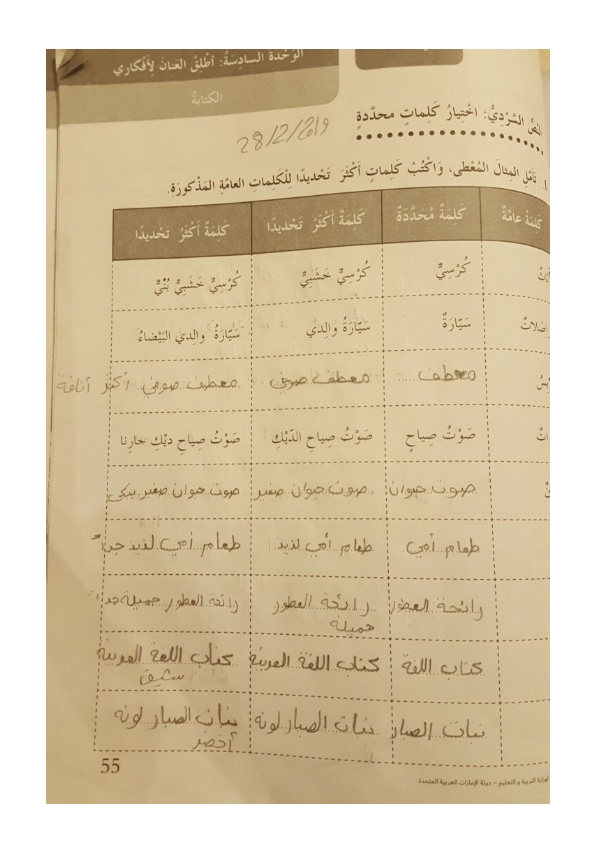 الوَحْدَةُ السّادِسَةُ: أُطْلِقُ العَنانَ لِأَفْكاري
الكِتابَةُ
النَّصُّ السَّرْدِيُّ: اخْتِيارُ كَلِماتٍ محدَّدةٍ
28/2/2019
1. تَأَمَّلِ المِثالَ المُعْطى، وَاكْتُبْ كَلِماتٍ أَكْثَرَ تَحْديدًا لِلْكَلِماتِ العامَّةِ المَذْكورَةِ.
كَلِمَةٌ عامَّةٌ كَلِمَةٌ مُحَدَّدَةٌ كَلِمَةٌ أَكْثَرُ تَحْديدًا كَلِمَةٌ أَكْثَرُ تَحْديدًا
كُرْسِيٌّ كُرْسِيٌّ خَشَبِيٌّ كُرْسِيٌّ خَشَبِيٌّ بُنِّيٌّ
سَيّارَةٌ سَيّارَةُ والِدي سَيّارَةُ والِدي البَيْضاءُ
معطف معطف صوفي معطف صوفي أكثر أناقة
صَوْتُ صِياحٍ صَوْتُ صِياحِ الدّيْكِ صَوْتُ صِياحِ ديْكِ جارِنا
صوت حيوان صوت حيوان صغير صوت حيوان صغير يبكي
طعام أمي طعام أمي لذيذ طعام أمي لذيذ جداً
رائحة العطور رائحة العطور جميلة رائحة العطور جميلة جداً
كتاب اللغة كتاب اللغة العربية كتاب اللغة العربية شيق
نبات الصبار نبات الصبار لونه نبات الصبار لونه أخضر
55
التربية و التعليم - دولة الإمارات العربية المتحدة